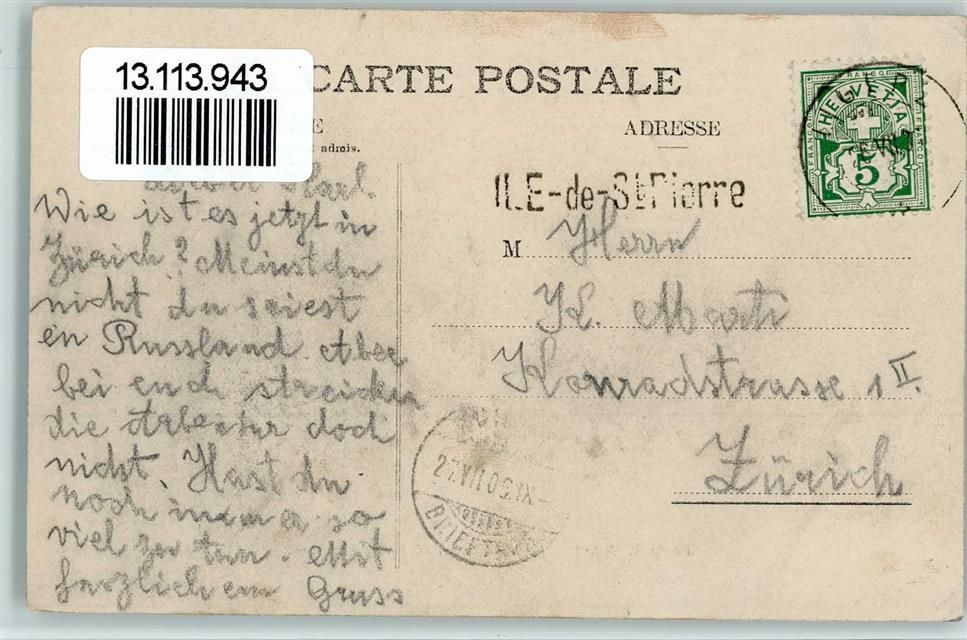 13.113.943
CARTE POSTALE
ADRESSE
admis.
ILE-de-St Pierre
HELVETIA
FRANCO
5
Karl
Wie ist es jetzt in
Zürich? Meinst du
nicht du seiest
en Russland. Aber
bei euch streicken
die Arbeiter doch
nicht. Hast du
noch immer so
viel zu tun. Mit
herzlichem Gruss
M Herrn
K. Marti
Konradstrasse 1 II.
Zürich
27.VII.06.IX-